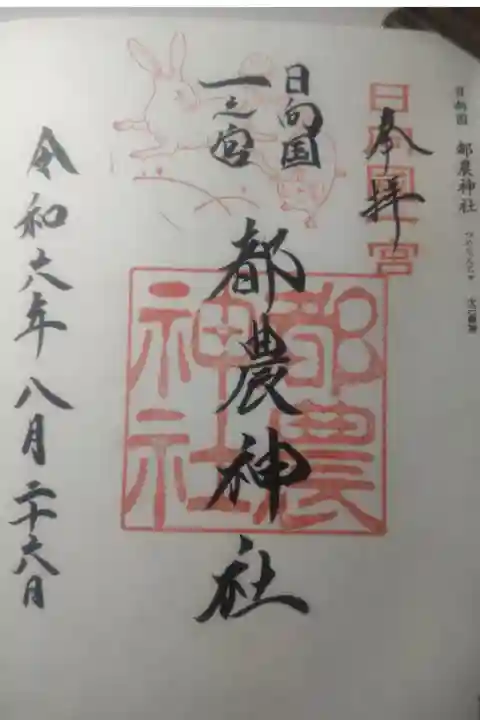 日向国 都農神社
日向国一宮
奉拝
日向国
一之宮
都農神社
都農神社
令和六年八月二十六日